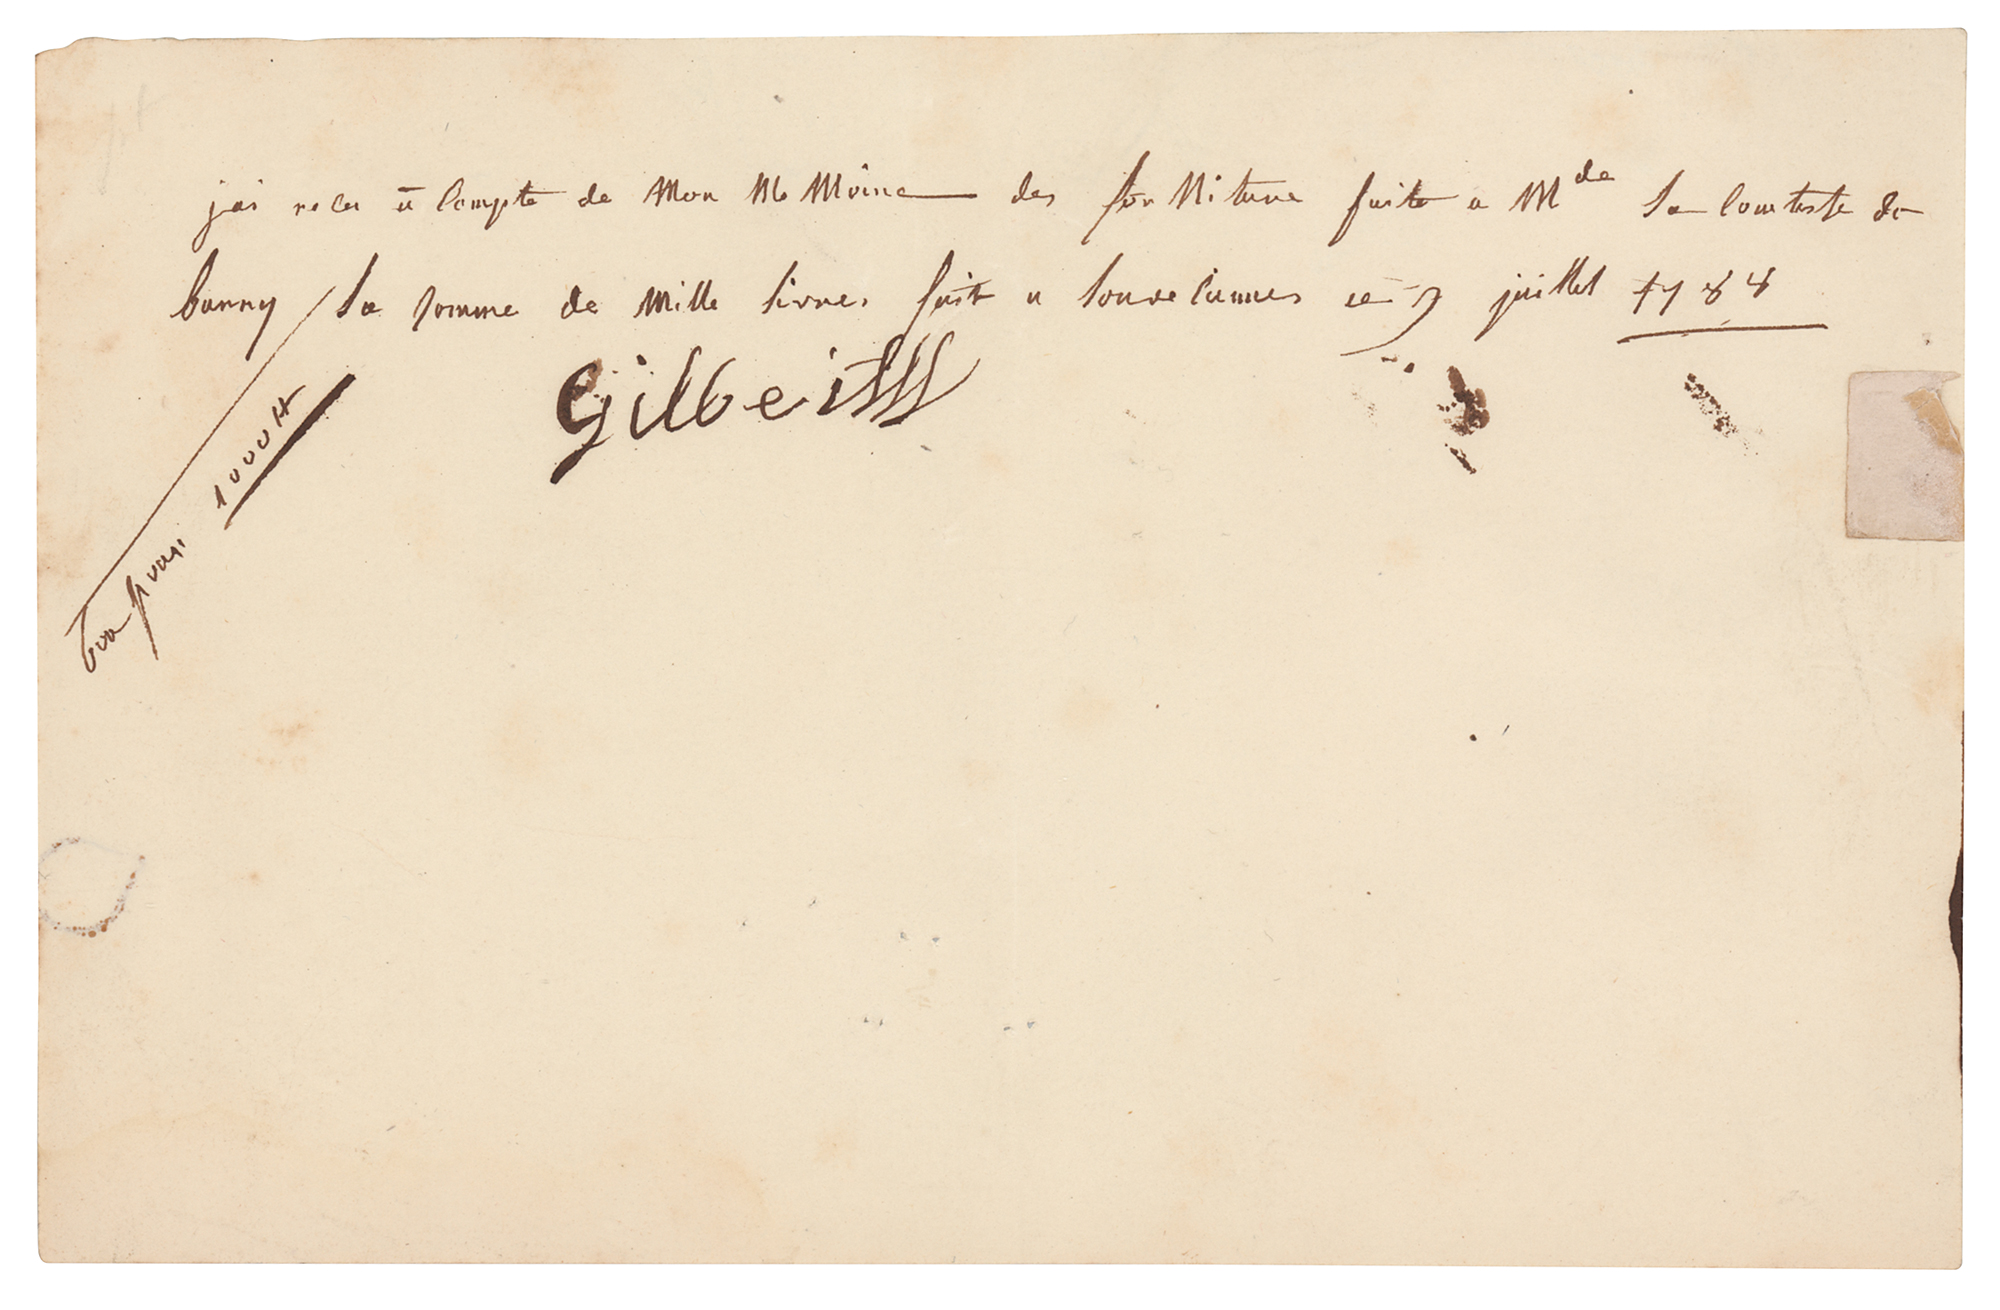 jai recu a Compte de Mon Me Moire des forNiture faite a Mde La Comtesse de
barry La somme de Mille Livres fait a Louveciennes ce 7 juillet 1788
Gilbert
bon pour 1000 lt